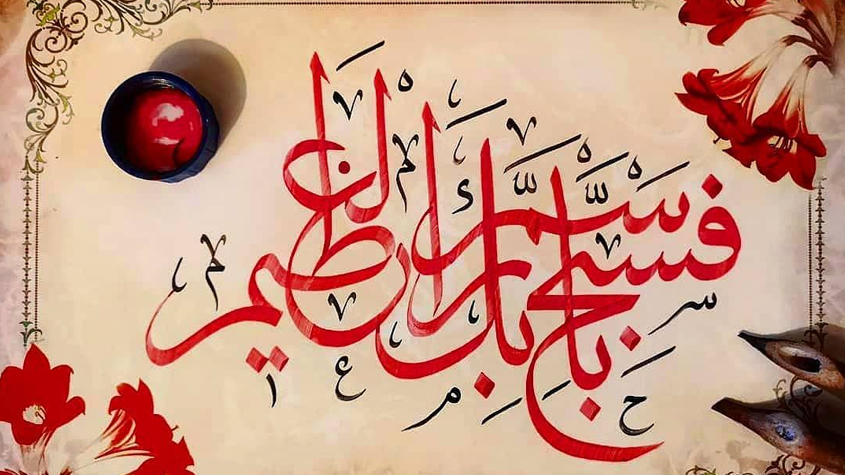 فسبح باسم ربك العظيم